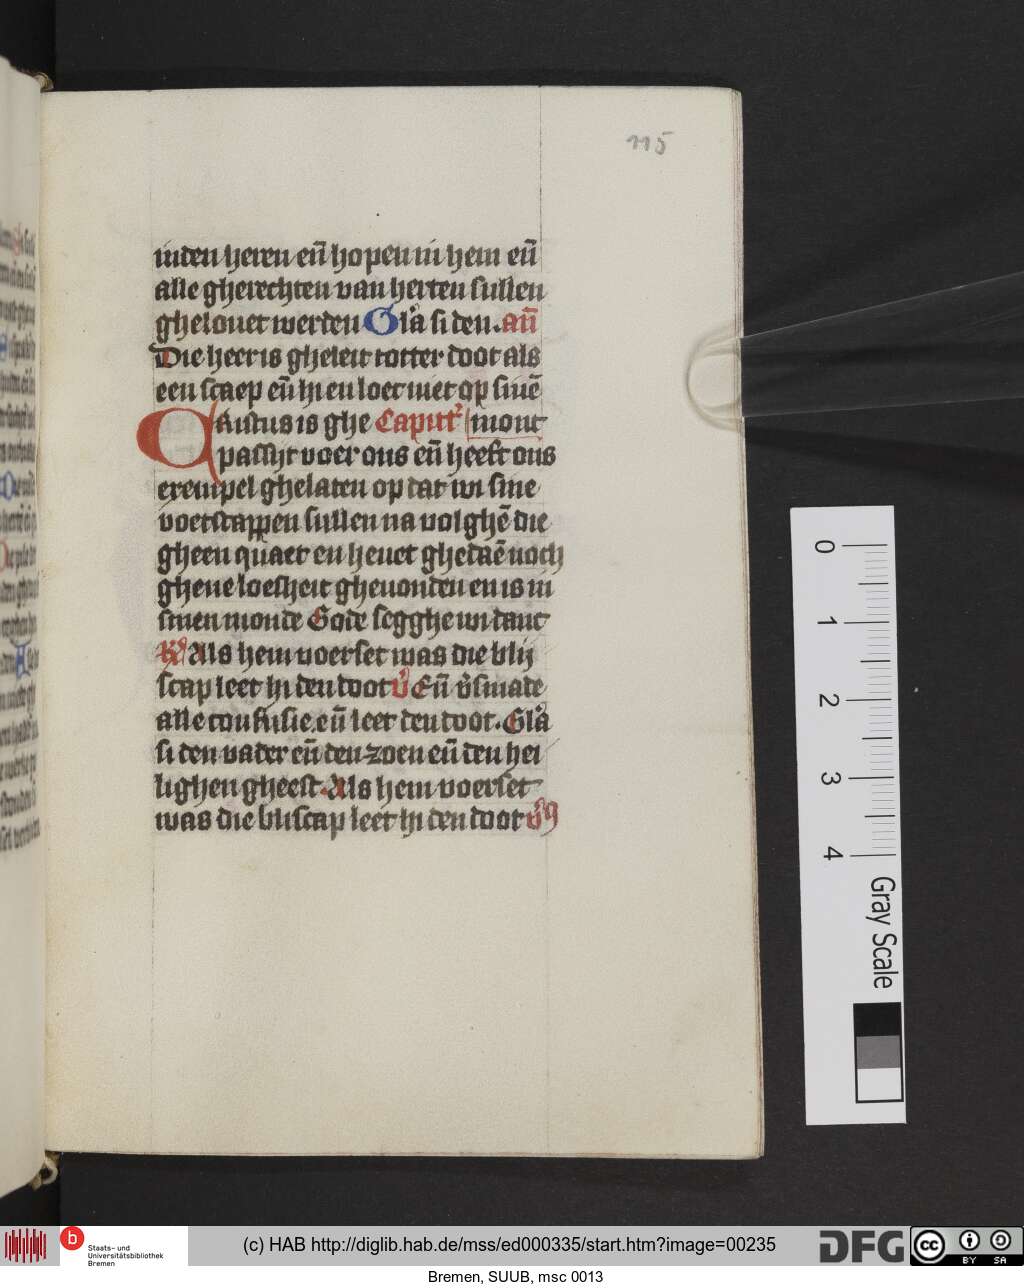 115
inden heren eñ hopen in hem eñ
alle gherechten van herten sullen
ghelouet werden Gła si den. an̄
Die heer is gheleit totter doot als
een scaep eñ hi en loec niet op sinē
Cristus is ghe Caputt' mont
passyt voer ons eñ heeft ons
exempel ghelaten op dat wi sine
voetstappen sullen na volghē die
gheen quaet en heuet ghedaē noch
ghene loesheit gheuonden en is in
sinen monde Gode segghe wi danc
R' Als hem voerset was die blij
scap leet hi den doot v' Eñ v'smade
alle confusie. eñ leet den doot. Gła
si den vader eñ den zoen eñ den hei
lighen gheest. Als hem voerset
was die bliscap leet hi den doot v'9
0
1
2
3
4
Gray Scale
b Staats- und
Universitätsbibliothek
Bremen
(c) HAB http://diglib.hab.de/mss/ed000335/start.htm?image=00235
DFG
cc BY SA
Bremen, SUUB, msc 0013